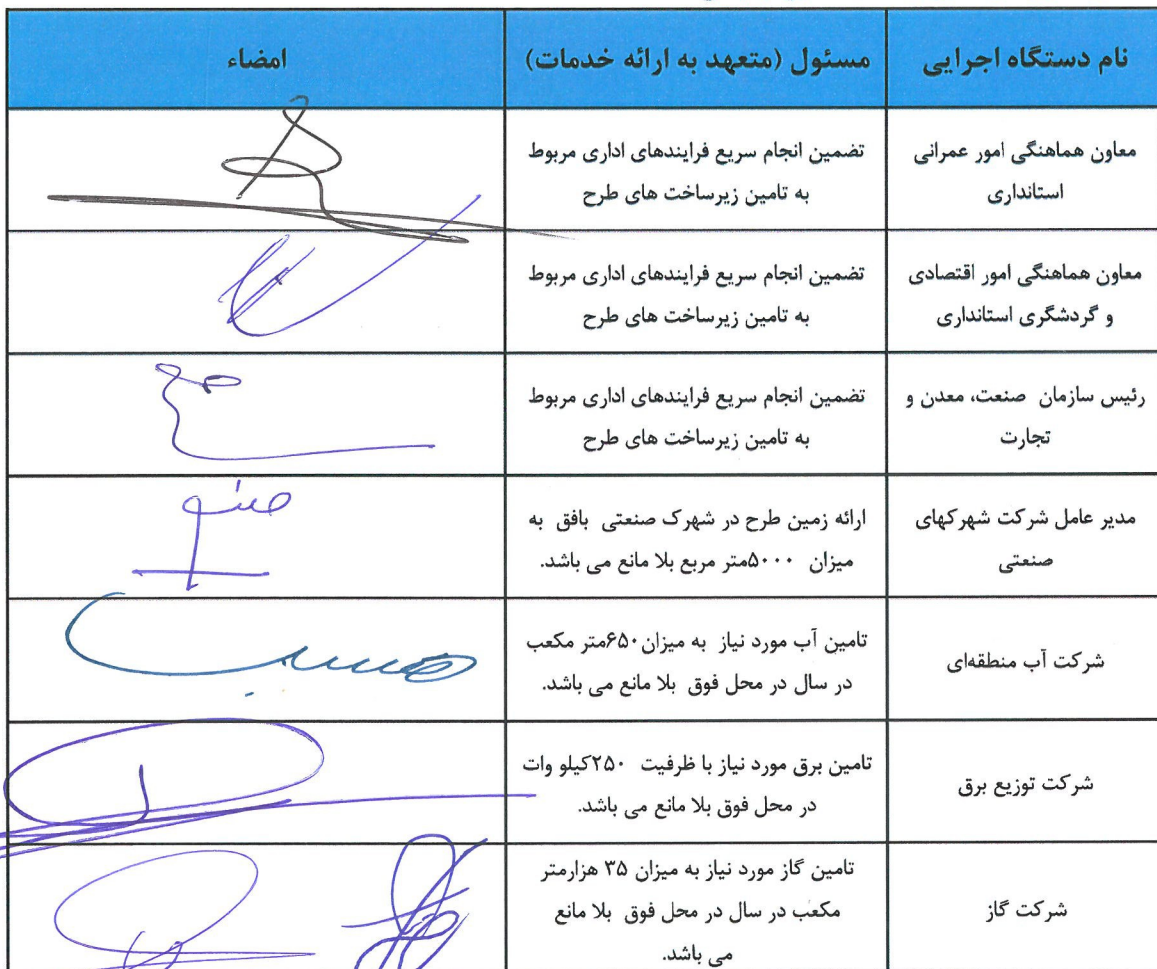 نام دستگاه اجرایی
مسئول (متعهد به ارائه خدمات)
امضاء
معاون هماهنگی امور عمرانی
استانداری
تضمین انجام سریع فرایندهای اداری مربوط
به تامین زیرساخت های طرح
معاون هماهنگی امور اقتصادی
و گردشگری استانداری
تضمین انجام سریع فرایندهای اداری مربوط
به تامین زیرساخت های طرح
رئیس سازمان صنعت، معدن و
تجارت
تضمین انجام سریع فرایندهای اداری مربوط
به تامین زیرساخت های طرح
مدیر عامل شرکت شهرکهای
صنعتی
ارائه زمین طرح در شهرک صنعتی بافق به
میزان ۵۰۰۰متر مربع بلا مانع می باشد.
شرکت آب منطقه‌ای
تامین آب مورد نیاز به میزان۶۵۰متر مکعب
در سال در محل فوق بلا مانع می باشد.
شرکت توزیع برق
تامین برق مورد نیاز با ظرفیت ۲۵۰کیلو وات
در محل فوق بلا مانع می باشد.
شرکت گاز
تامین گاز مورد نیاز به میزان ۳۵ هزارمتر
مکعب در سال در محل فوق بلا مانع
می باشد.